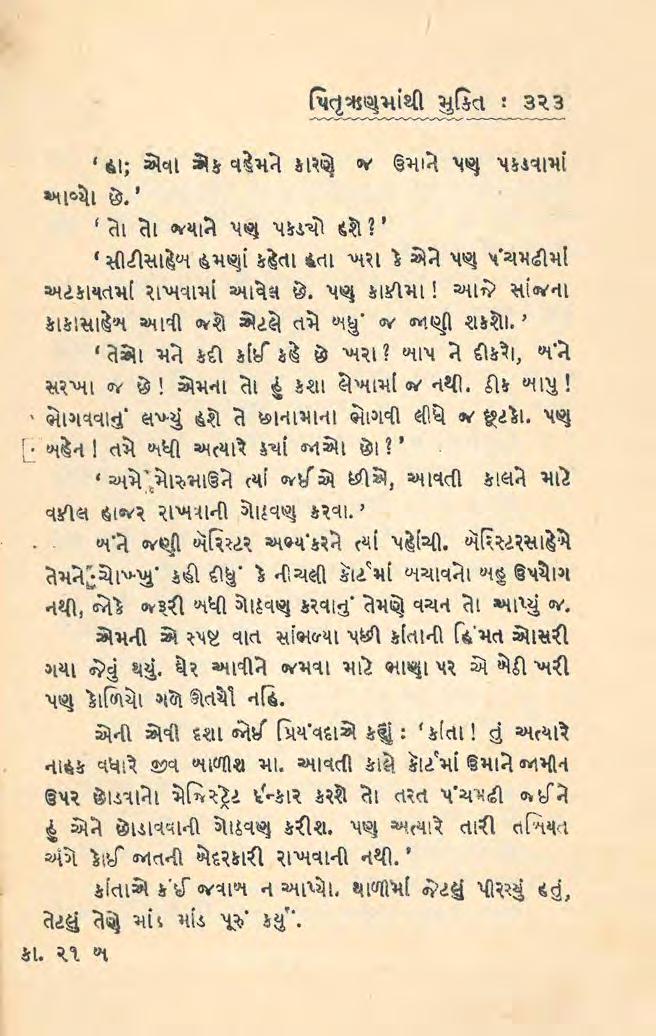 પિતૃઋણમાંથી મુક્તિ : ૩૨૩
‘ હા; એવા એક વહેમને કારણે જ ઉમાને પણ પકડવામાં
આવ્યો છે. ’
‘ તો તો જયાને પણ પકડચો હશે ? ’
‘ સીટીસાહેબ હમણાં કહેતા હતા ખરા કે એને પણ પંચમઢીમાં
અટકાયતમાં રાખવામાં આવેલ છે. પણ કાકીમા ! આજે સાંજના
કાકાસાહેબ આવી જશે એટલે તમે બધું જ જાણી શકશો. ’
‘ તેઓ મને કદી કાંઈ કહે છે ખરા ? બાપ ને દીકરો, બંને
સરખા જ છે ! એમના તો હું કશા લેખામાં જ નથી. ઠીક બાપુ !
ભોગવવાનું લખ્યું હશે તે છાનામાના ભોગવી લીધે જ છૂટકો. પણ
બહેન ! તમે બધી અત્યારે કચાં જાઓ છો ? ’
‘ અમે મોરુભાઉને ત્યાં જઈએ છીએ, આવતી કાલને માટે
વકીલ હાજર રાખવાની ગોઠવણ કરવા. ’
બંને જણી બૅરિસ્ટર અભ્યંકરને ત્યાં પહોંચી. બૅરિસ્ટરસાહેબે
તેમને ચોખ્ખું કહી દીધું કે નીચલી કૉર્ટમાં બચાવનો બહુ ઉપયોગ
નથી, જોકે જરૂરી બધી ગોઠવણ કરવાનું તેમણે વચન તો આપ્યું જ.
એમની એ સ્પષ્ટ વાત સાંભળ્યા પછી કાંતાની હિંમત ઓસરી
ગયા જેવું થયું. ઘેર આવીને જમવા માટે ભાણા પર એ બેઠી ખરી
પણ કોળિયો ગળે ઊતર્યો નહિ.
એની એવી દશા જોઈ પ્રિયંવદાએ કહ્યું : ‘ કાંતા ! તું અત્યારે
નાહક વધારે જીવ બાળીશ મા. આવતી કાલે કૉર્ટમાં ઉમાને જામીન
ઉપર છોડવાનો મેજિસ્ટ્રેટ ઈન્કાર કરશે તો તરત પંચમઢી જઈને
હું એને છોડાવવાની ગોઠવણ કરીશ. પણ અત્યારે તારી તબિયત
અંગે કોઈ જાતની બેદરકારી રાખવાની નથી. ’
કાંતાએ કંઈ જવાબ ન આપ્યો. થાળીમાં જેટલું પીરસ્યું હતું,
તેટલું તેણે માંડ માંડ પૂરું કર્યું.
કા. ૨૧ બ